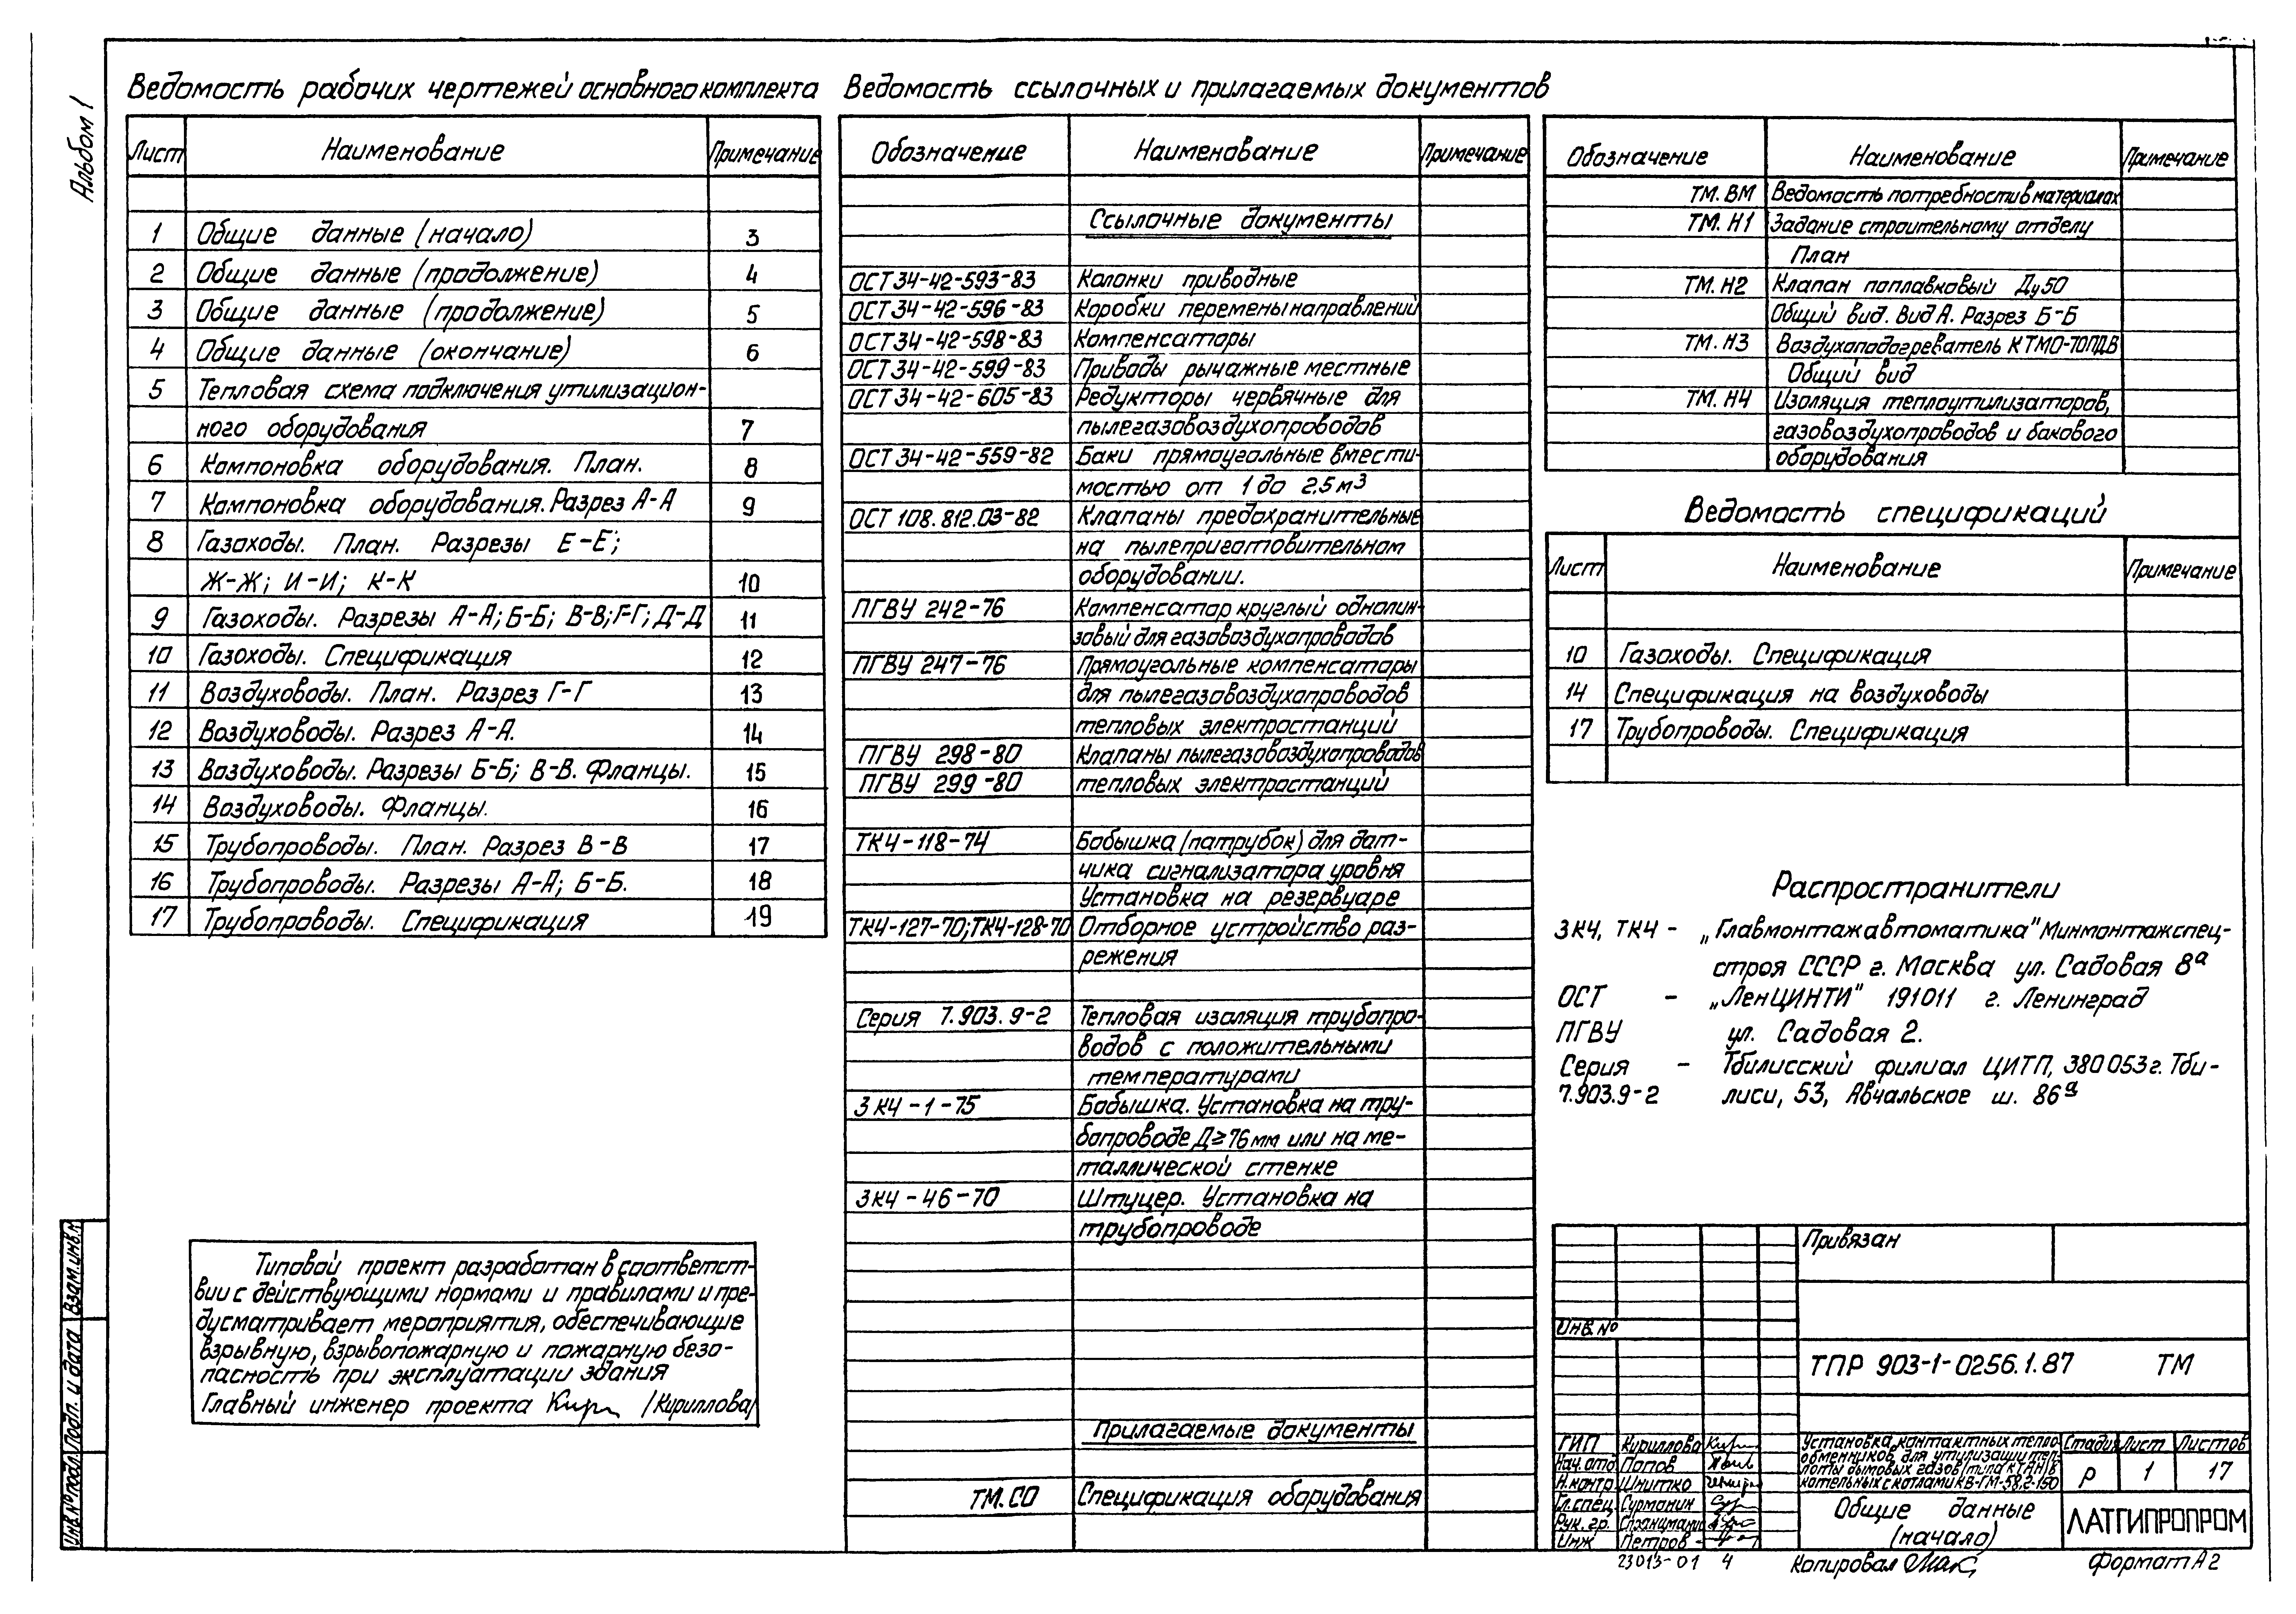 Альбом 1
Ведомость рабочих чертежей основного комплекта
Лист Наименование Примечание
1 Общие данные (начало) 3
2 Общие данные (продолжение) 4
3 Общие данные (продолжение) 5
4 Общие данные (окончание) 6
5 Тепловая схема подключения утилизацион-
ного оборудования 7
6 Компоновка оборудования. План. 8
7 Компоновка оборудования. Разрез А-А 9
8 Газоходы. План. Разрезы Е-Е;
Ж-Ж; И-И; К-К 10
9 Газоходы. Разрезы А-А; Б-Б; В-В; Г-Г; Д-Д 11
10 Газоходы. Спецификация 12
11 Воздуховоды. План. Разрез Г-Г 13
12 Воздуховоды. Разрез А-А. 14
13 Воздуховоды. Разрезы Б-Б; В-В. Фланцы. 15
14 Воздуховоды. Фланцы. 16
15 Трубопроводы. План. Разрез В-В 17
16 Трубопроводы. Разрезы А-А; Б-Б. 18
17 Трубопроводы. Спецификация 19
Типовой проект разработан в соответст-
вии с действующими нормами и правилами и пре-
дусматривает мероприятия, обеспечивающие
взрывную, взрывопожарную и пожарную безо-
пасность при эксплуатации здания
Главный инженер проекта /Кириллова/
Ведомость ссылочных и прилагаемых документов
Обозначение Наименование Примечание
Ссылочные документы
ОСТ 34-42-593-83 Колонки приводные
ОСТ 34-42-596-83 Коробки перемены направлений
ОСТ 34-42-598-83 Компенсаторы
ОСТ 34-42-599-83 Приводы рычажные местные
ОСТ 34-42-605-83 Редукторы червячные для
пылегазовоздухопроводов
ОСТ 34-42-559-82 Баки прямоугольные вмести-
мостью от 1 до 2,5 м³
ОСТ 108.812.03-82 Клапаны предохранительные
на пылеприготовительном
оборудовании.
ПГВУ 242-76 Компенсатор круглый однолин-
зовый для газовоздухопроводов
ПГВУ 247-76 Прямоугольные компенсаторы
для пылегазовоздухопроводов
тепловых электростанций
ПГВУ 298-80 Клапаны пылегазовоздухопроводов
ПГВУ 299-80 тепловых электростанций
ТК4-118-74 Бобышка (патрубок) для дат-
чика сигнализатора уровня
Установка на резервуаре
ТК4-127-70; ТК4-128-70 Отборное устройство раз-
режения
Серия 7.903.9-2 Тепловая изоляция трубопро-
водов с положительными
температурами
ЗК4-1-75 Бобышка. Установка на тру-
бопроводе Д≥76 мм или на ме-
таллической стенке
ЗК4-46-70 Штуцер. Установка на
трубопроводе
Прилагаемые документы
ТМ.СО Спецификация оборудования
Обозначение Наименование Примечание
ТМ.ВМ Ведомость потребности в материалах
ТМ.Н1 Задание строительному отделу
План
ТМ.Н2 Клапан поплавковый Ду50
Общий вид. Вид А. Разрез Б-Б
ТМ.Н3 Воздухоподогреватель КТМО-70ПДВ
Общий вид
ТМ.Н4 Изоляция теплоутилизаторов,
газовоздухопроводов и бакового
оборудования
Ведомость спецификаций
Лист Наименование Примечание
10 Газоходы. Спецификация
14 Спецификация на воздуховоды
17 Трубопроводы. Спецификация
Распространители
ЗК4, ТК4 - „Главмонтажавтоматика" Минмонтажспец-
строя СССР г. Москва ул. Садовая 8ª
ОСТ - „ЛенЦИНТИ" 191011 г. Ленинград
ПГВУ ул. Садовая 2.
Серия - Тбилисский филиал ЦИТП, 380053 г. Тби-
7.903.9-2 лиси, 53, Авчальское ш. 86ª
Привязан
Инв.№
ТПР 903-1-0256.1.87 ТМ
ГИП Кириллова
Нач. отд. Попов
Н.контр. Шнитко
Гл.спец. Сурманин
Рук. гр.
Инж Петров
Установка контактных тепло-
обменников для утилизации теп-
лоты дымовых газов (типа КТАН) в
котельных с котлами КВ-ГМ-58,2-150
Стадия Лист Листов
Р 1 17
Общие данные
(начало)
ЛАТГИПРОПРОМ
23013-01 4
Копировал
Формат А2
Взам.инв.№
Подп. и дата
Инв.№ подл.